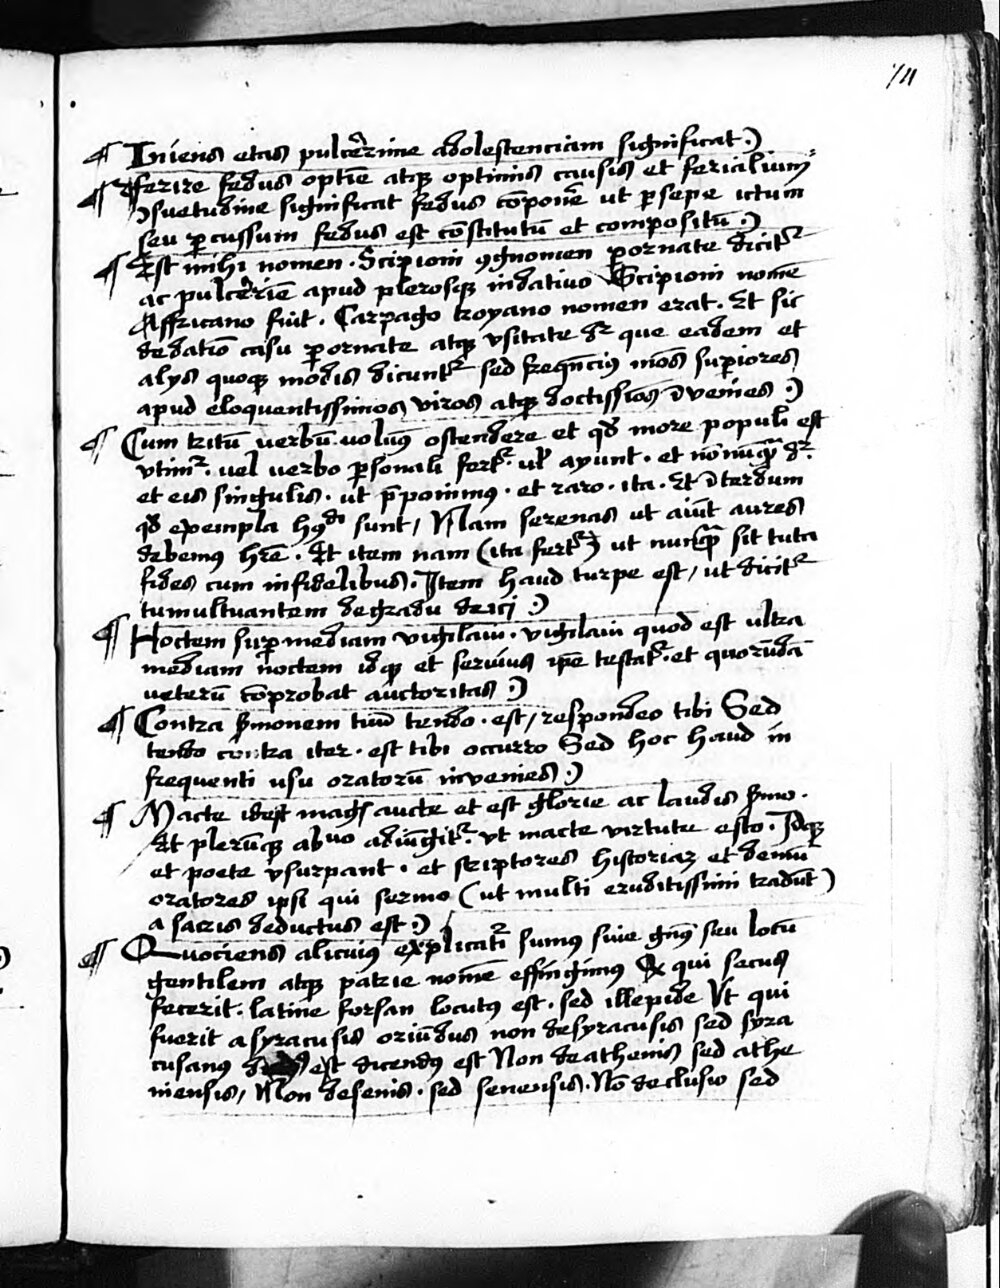 711
¶ Iniens etas pulcẽrrime adolestenciam significat·)
¶ Aferire fedus optĩe atqꝫ optimis causis et ferialium
ꝯsuetudine significat fedus cõponẽ ut ꝑsepe ictum
seu ꝑcussum fedus est cõstitutũ et compositũ·)
¶ Est mihi nomen · Scipioni ꝯgnomen ꝑornate dicitᷣ
ac pulcẽriẽ apud plerosqꝫ indatiuo Scipioni nomẽ
Affricano fuit · Carpago troyano nomen erat · Et sic
dedatiõ casu ꝑornate atqꝫ vsitate dᷣ que eadem et
alys quoqꝫ modis dicuntᷣ sed freqñcius mõs suꝑiores
apud eloquentissimos viros atqꝫ doctissiõs ĩvenies ·)
¶ Cum tritũ verbũ volumꝰ ostendere et qđ more populi est
vtimᷣ · uel verbo ꝑsonali fertᷣ · ul̛ ayunt · et nõnũqᷓ dᷣ ·
et eis singulis · ut p̃ponimꝰ · et raro · ita · Et ĩterdum
qđ exempla hꝰdi sunt / Nam serenas ut aiũt aures
debemus hr̃e · Et item nam (ita fertᷣ) ut nunqᷓ sit tuta
fides cum infidelibus · Item haud turpe est / ut dicitᷣ
tumultuantem degradu deici ·)
¶ Noctem suꝑ mediam vigilaui · vigilaui quod est ultra
mediam noctem idqꝫ et seruius ip̃e testatᷣ · et quorũdã
ueterũ cõprobat auctoritas ·)
¶ Contra ẜmonem tuũ tendo · est / respondeo tibi Sed
tendo contra iter · est tibi occurro Sed hoc haud in
frequenti usu oratorũ invenies ·)
¶ Macte idest magis aucte et est glorie ac laudis ẜmo ·
Et plerũqꝫ abuo adiũgitᷣ · vt macte virtute esto · Idqꝫ
et poete vsurpant · et scriptores historiaꝝ et demũ
oratores ipsi qui sermo (ut multi eruditissimi tradũt)
a sacris deductus est ·)
¶ Quociens alicuiꝰ explicatᷣi sumus siue genꝰ seu locũ
gentilem atqꝫ patrie nomẽ effingimus Qꝛ qui secus
fecerit · latine forsan locutꝰ est · sed illepide Vt qui
fuerit a syracusis oriũdus non desyracusis sed syra
cusanꝰ est dicendꝰ est Non deathenis sed athe
niensis / Non desenis · sed senensis · Nõ declusio sed